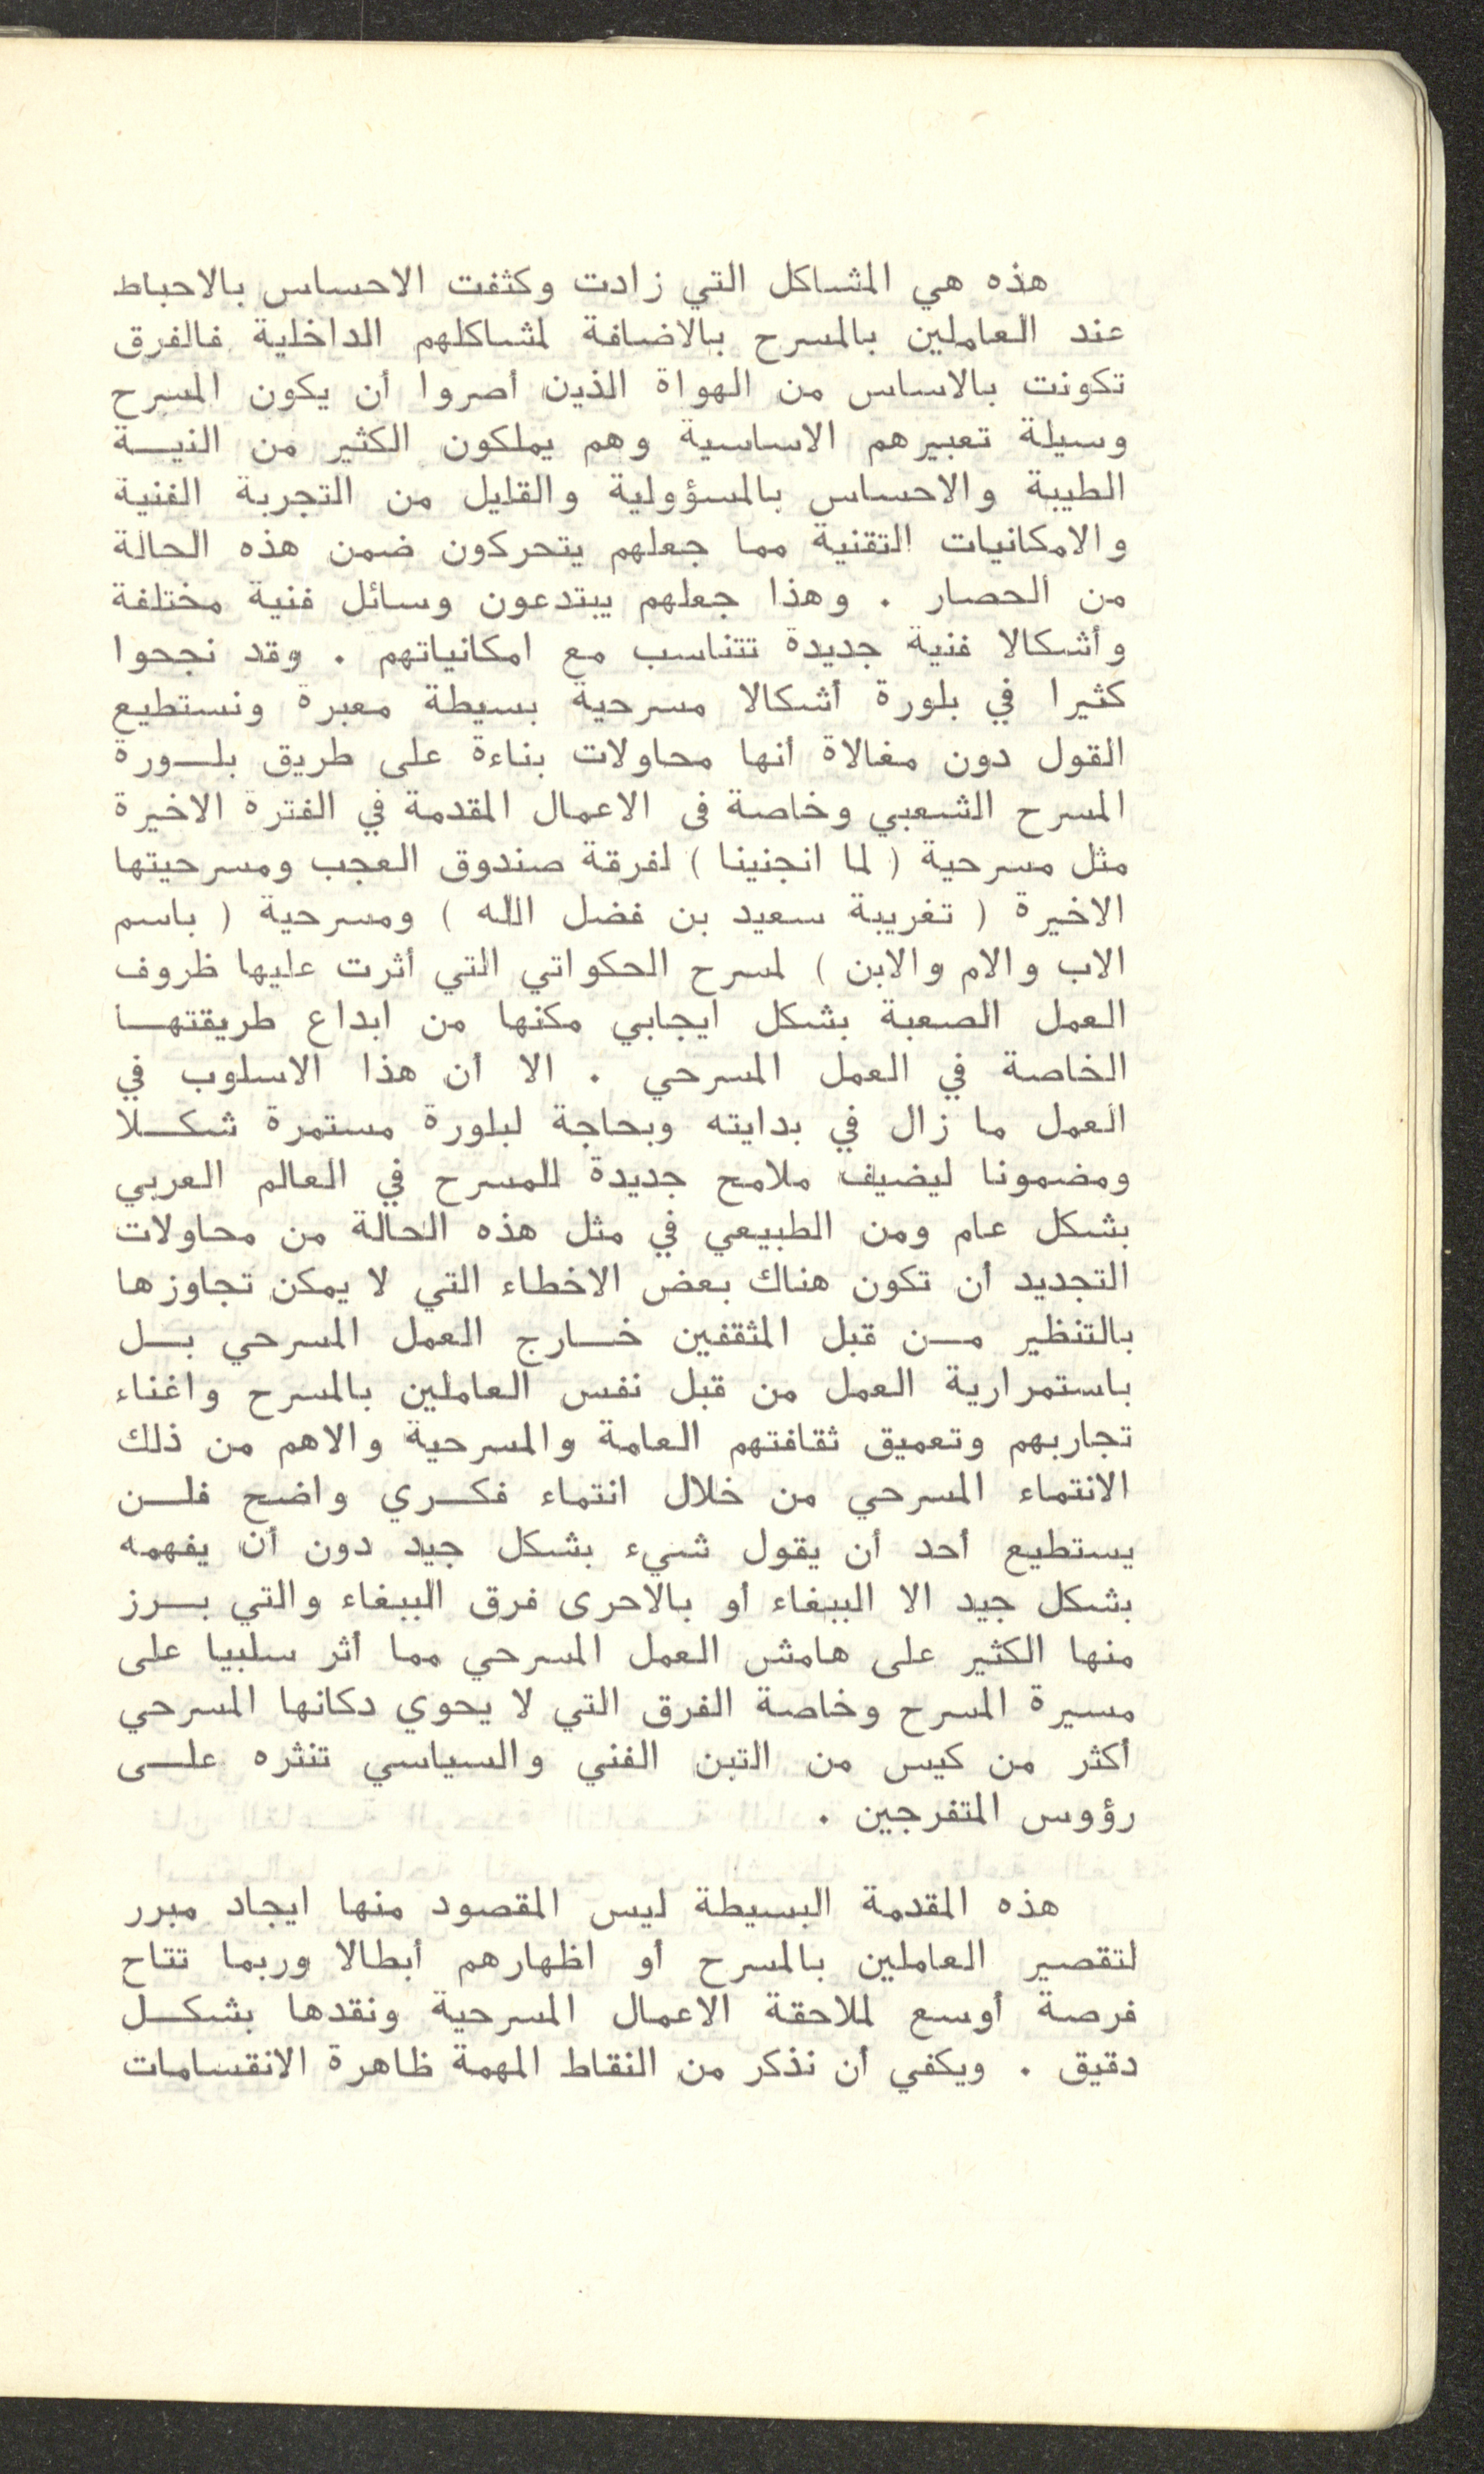 هذه هي المشاكل التي زادت وكثفت الاحساس بالاحباط
عند العاملين بالمسرح بالاضافة لمشاكلهم الداخلية فالفرق
تكونت بالاساس من الهواة الذين أصروا أن يكون المسرح
وسيلة تعبيرهم الاساسية وهم يملكون الكثير من النيـــة
الطيبة والاحساس بالمسؤولية والقليل من التجربة الفنية
والامكانيات التقنية مما جعلهم يتحركون ضمن هذه الحالة
من الحصار . وهذا جعلهم يبتدعون وسائل فنية مختلفة
وأشكالا فنية جديدة تتناسب مع امكانياتهم . وقد نجحوا
كثيرا في بلورة أشكالا مسرحية بسيطة معبرة ونستطيع
القول دون مغالاة أنها محاولات بناءة على طريق بلـــورة
المسرح الشعبي وخاصة فى الاعمال المقدمة في الفترة الاخيرة
مثل مسرحية ( لما انجنينا ) لفرقة صندوق العجب ومسرحيتها
الاخيرة ( تغريبة سعيد بن فضل الله ) ومسرحية ( باسم
الاب والام والابن ) لمسرح الحكواتي التي أثرت عليها ظروف
العمل الصعبة بشكل ايجابي مكنها من ابداع طريقتهـــا
الخاصة في العمل المسرحي . الا أن هذا الاسلوب في
العمل ما زال في بدايته وبحاجة لبلورة مستمرة شكـــلا
ومضمونا ليضيف ملامح جديدة للمسرح في العالم العربي
بشكل عام ومن الطبيعي في مثل هذه الحالة من محاولات
التجديد أن تكون هناك بعض الاخطاء التي لا يمكن تجاوزها
بالتنظير مـــن قبل المثقفين خـــارج العمل المسرحي بـــل
باستمرارية العمل من قبل نفس العاملين بالمسرح واغناء
تجاربهم وتعميق ثقافتهم العامة والمسرحية والاهم من ذلك
الانتماء المسرحي من خلال انتماء فكـــري واضح فلـــن
يستطيع أحد أن يقول شيء بشكل جيد دون أن يفهمه
بشكل جيد الا الببغاء أو بالاحرى فرق الببغاء والتي بـــرز
منها الكثير على هامش العمل المسرحي مما أثر سلبيا على
مسيرة المسرح وخاصة الفرق التي لا يحوي دكانها المسرحي
أكثر من كيس من التبن الفني والسياسي تنثره علـــى
رؤوس المتفرجين .
هذه المقدمة البسيطة ليس المقصود منها ايجاد مبرر
لتقصير العاملين بالمسرح أو اظهارهم أبطالا وربما تتاح
فرصة أوسع لملاحقة الاعمال المسرحية ونقدها بشكـــل
دقيق . ويكفي أن نذكر من النقاط المهمة ظاهرة الانقسامات